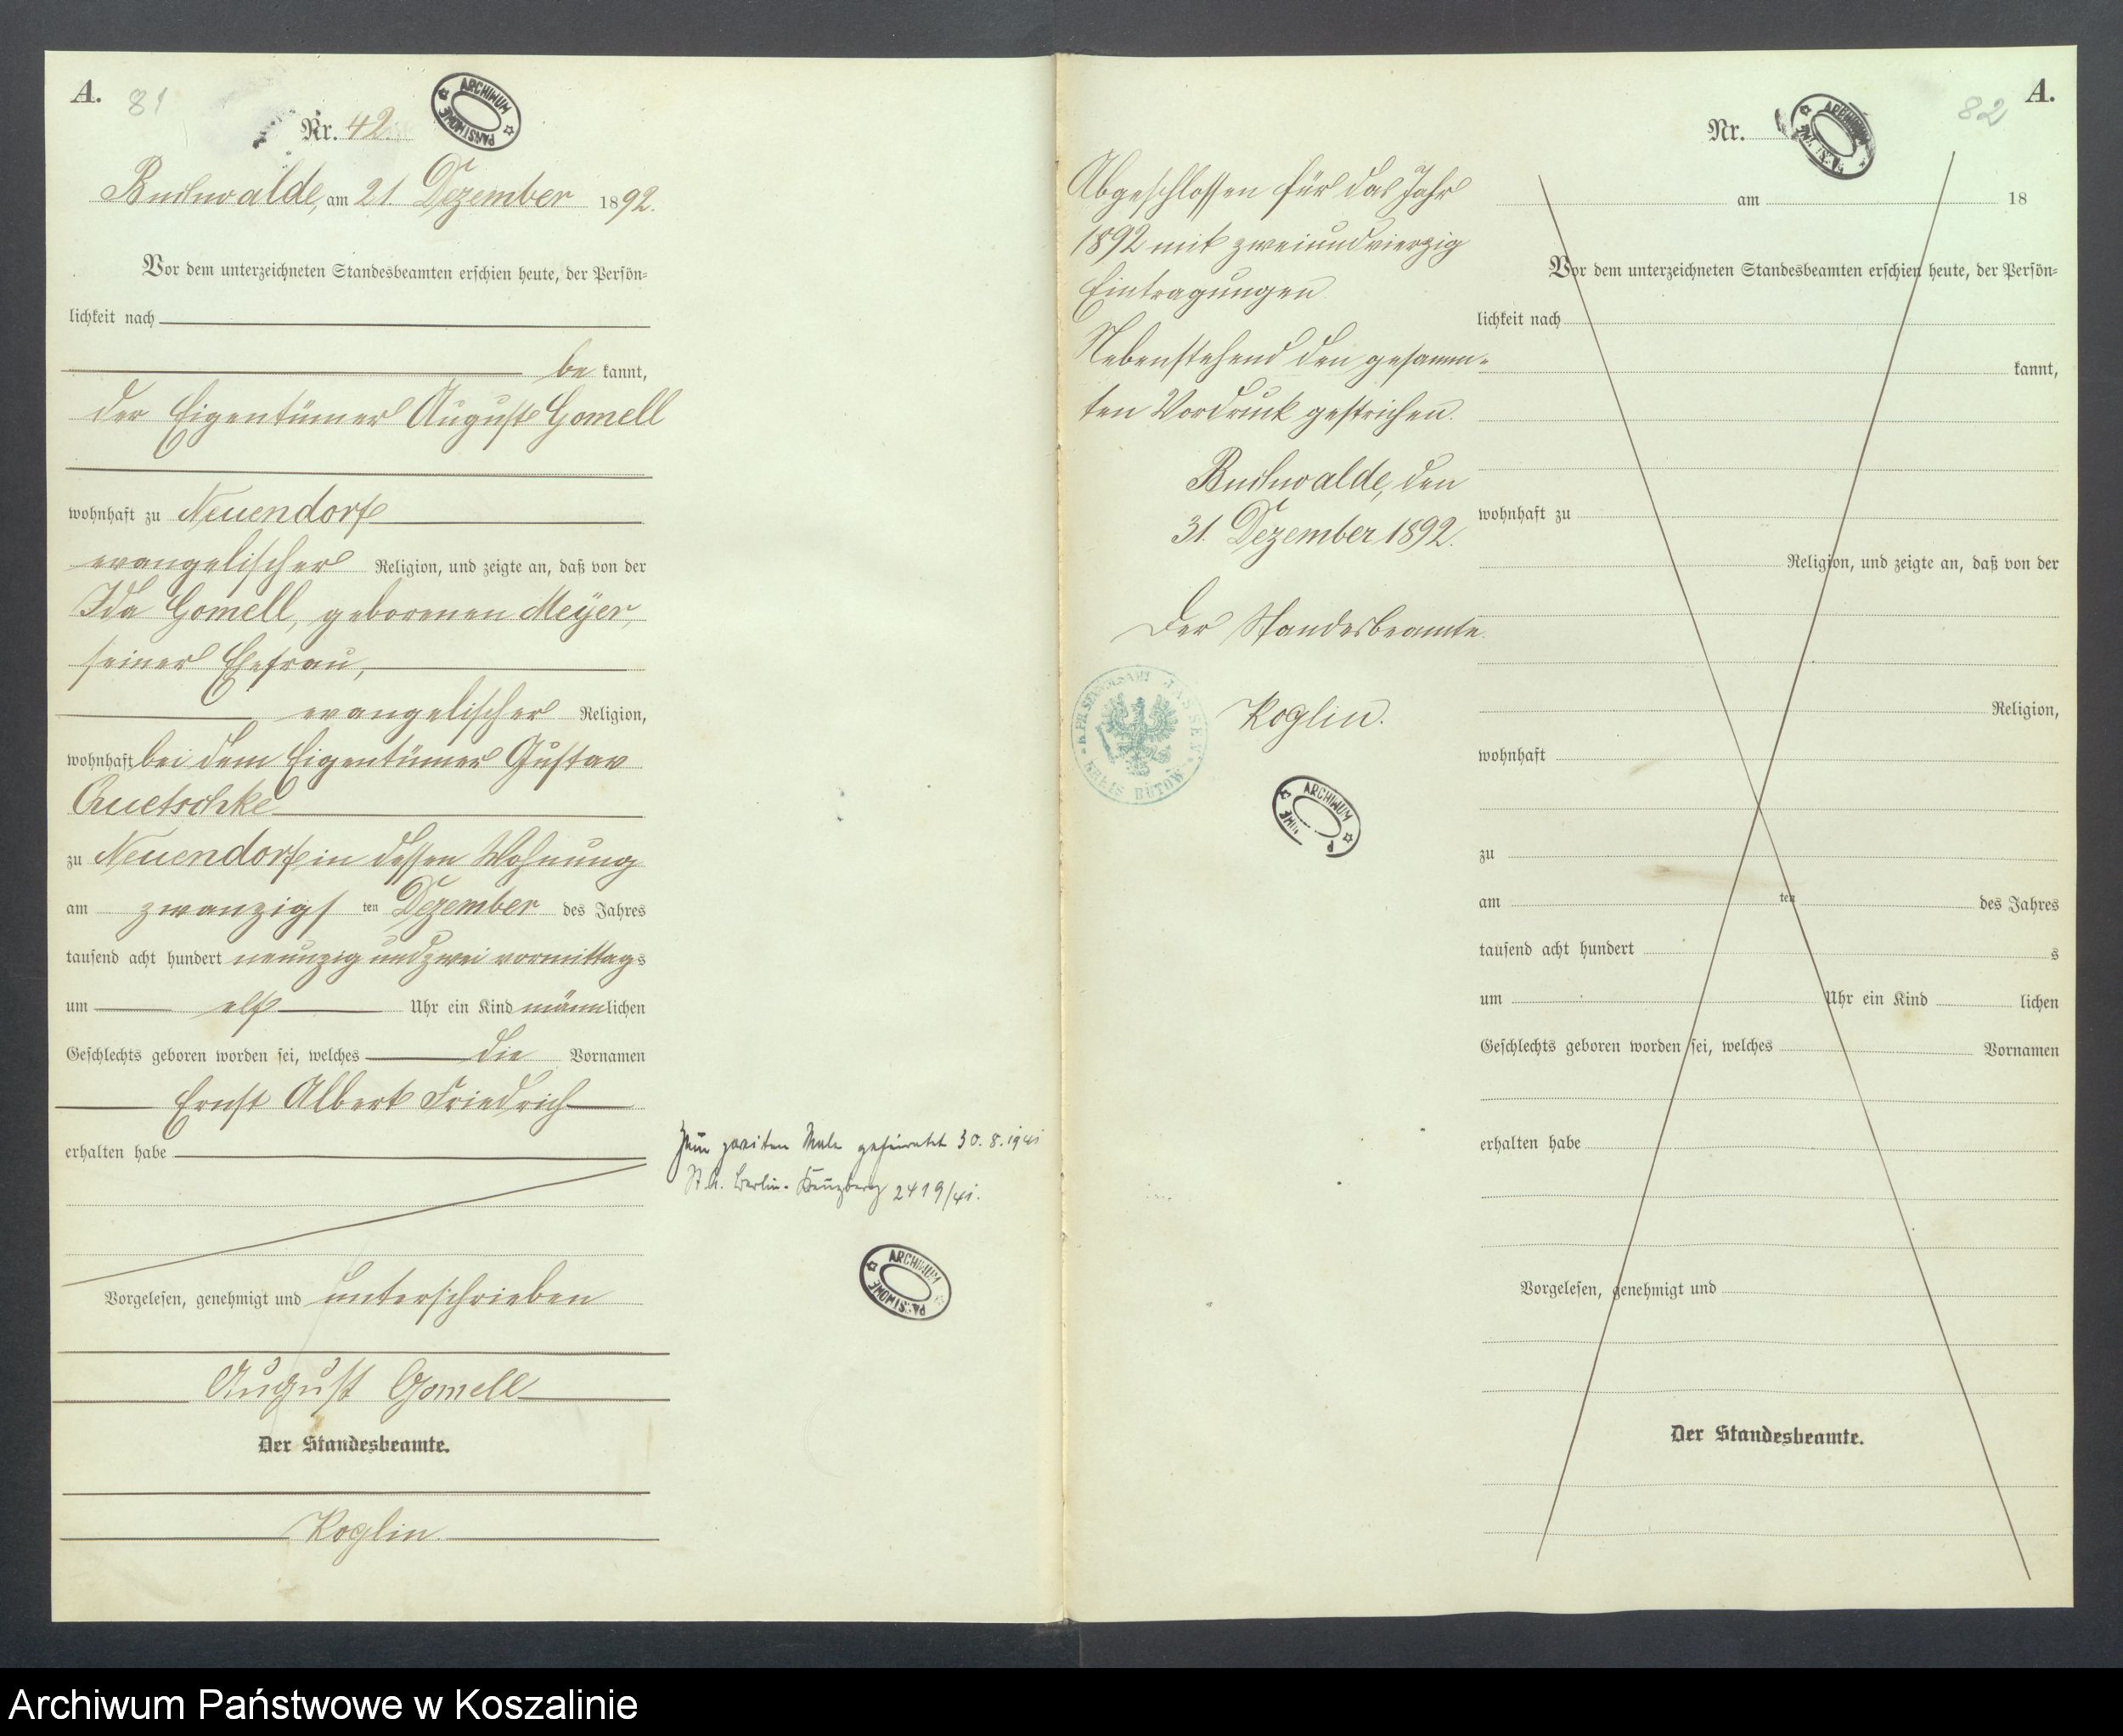 A.
81
Nr. 42.
ARCHIWUM PAŃSTWOWE
Buchwalde, am 21. Dezember 1892.
Vor dem unterzeichneten Standesbeamten erschien heute, der Persön=
lichkeit nach
be kannt,
der Eigentümer August Gomell
wohnhaft zu Neuendorf
evangelischer Religion, und zeigte an, daß von der
Ida Gomell, geborenen Meyer,
seiner Ehefrau,
evangelischer Religion,
wohnhaft bei dem Eigentümer Gustav
Quetschke
zu Neuendorf in dessen Wohnung
am zwanzigs ten Dezember des Jahres
tausend acht hundert neunzig und zwei vormittags
um elf Uhr ein Kind männlichen
Geschlechts geboren worden sei, welches die Vornamen
Ernst Albert Friedrich
erhalten habe
Zum zweiten Male geheiratet 30.8.1941
St.A. Berlin-Kreuzberg 2419/41.
ARCHIWUM PAŃSTWOWE
Vorgelesen, genehmigt und unterschrieben
August Gomell
Der Standesbeamte.
Koglin.
A.
82
Nr.
ARCHIWUM
Abgeschlossen für das Jahr
1892 mit zweiundvierzig
Eintragungen
Nebenstehend den gesamm-
ten Vordruck gestrichen.
Buchwalde, den
31. Dezember 1892.
Der Standesbeamte.
Koglin.
KREIS BÜTOW
ARCHIWUM
am 18
Vor dem unterzeichneten Standesbeamten erschien heute, der Persön=
lichkeit nach
kannt,
wohnhaft zu
Religion, und zeigte an, daß von der
Religion,
wohnhaft
zu
am ten des Jahres
tausend acht hundert s
um Uhr ein Kind lichen
Geschlechts geboren worden sei, welches Vornamen
erhalten habe
Vorgelesen, genehmigt und
Der Standesbeamte.
Archiwum Państwowe w Koszalinie